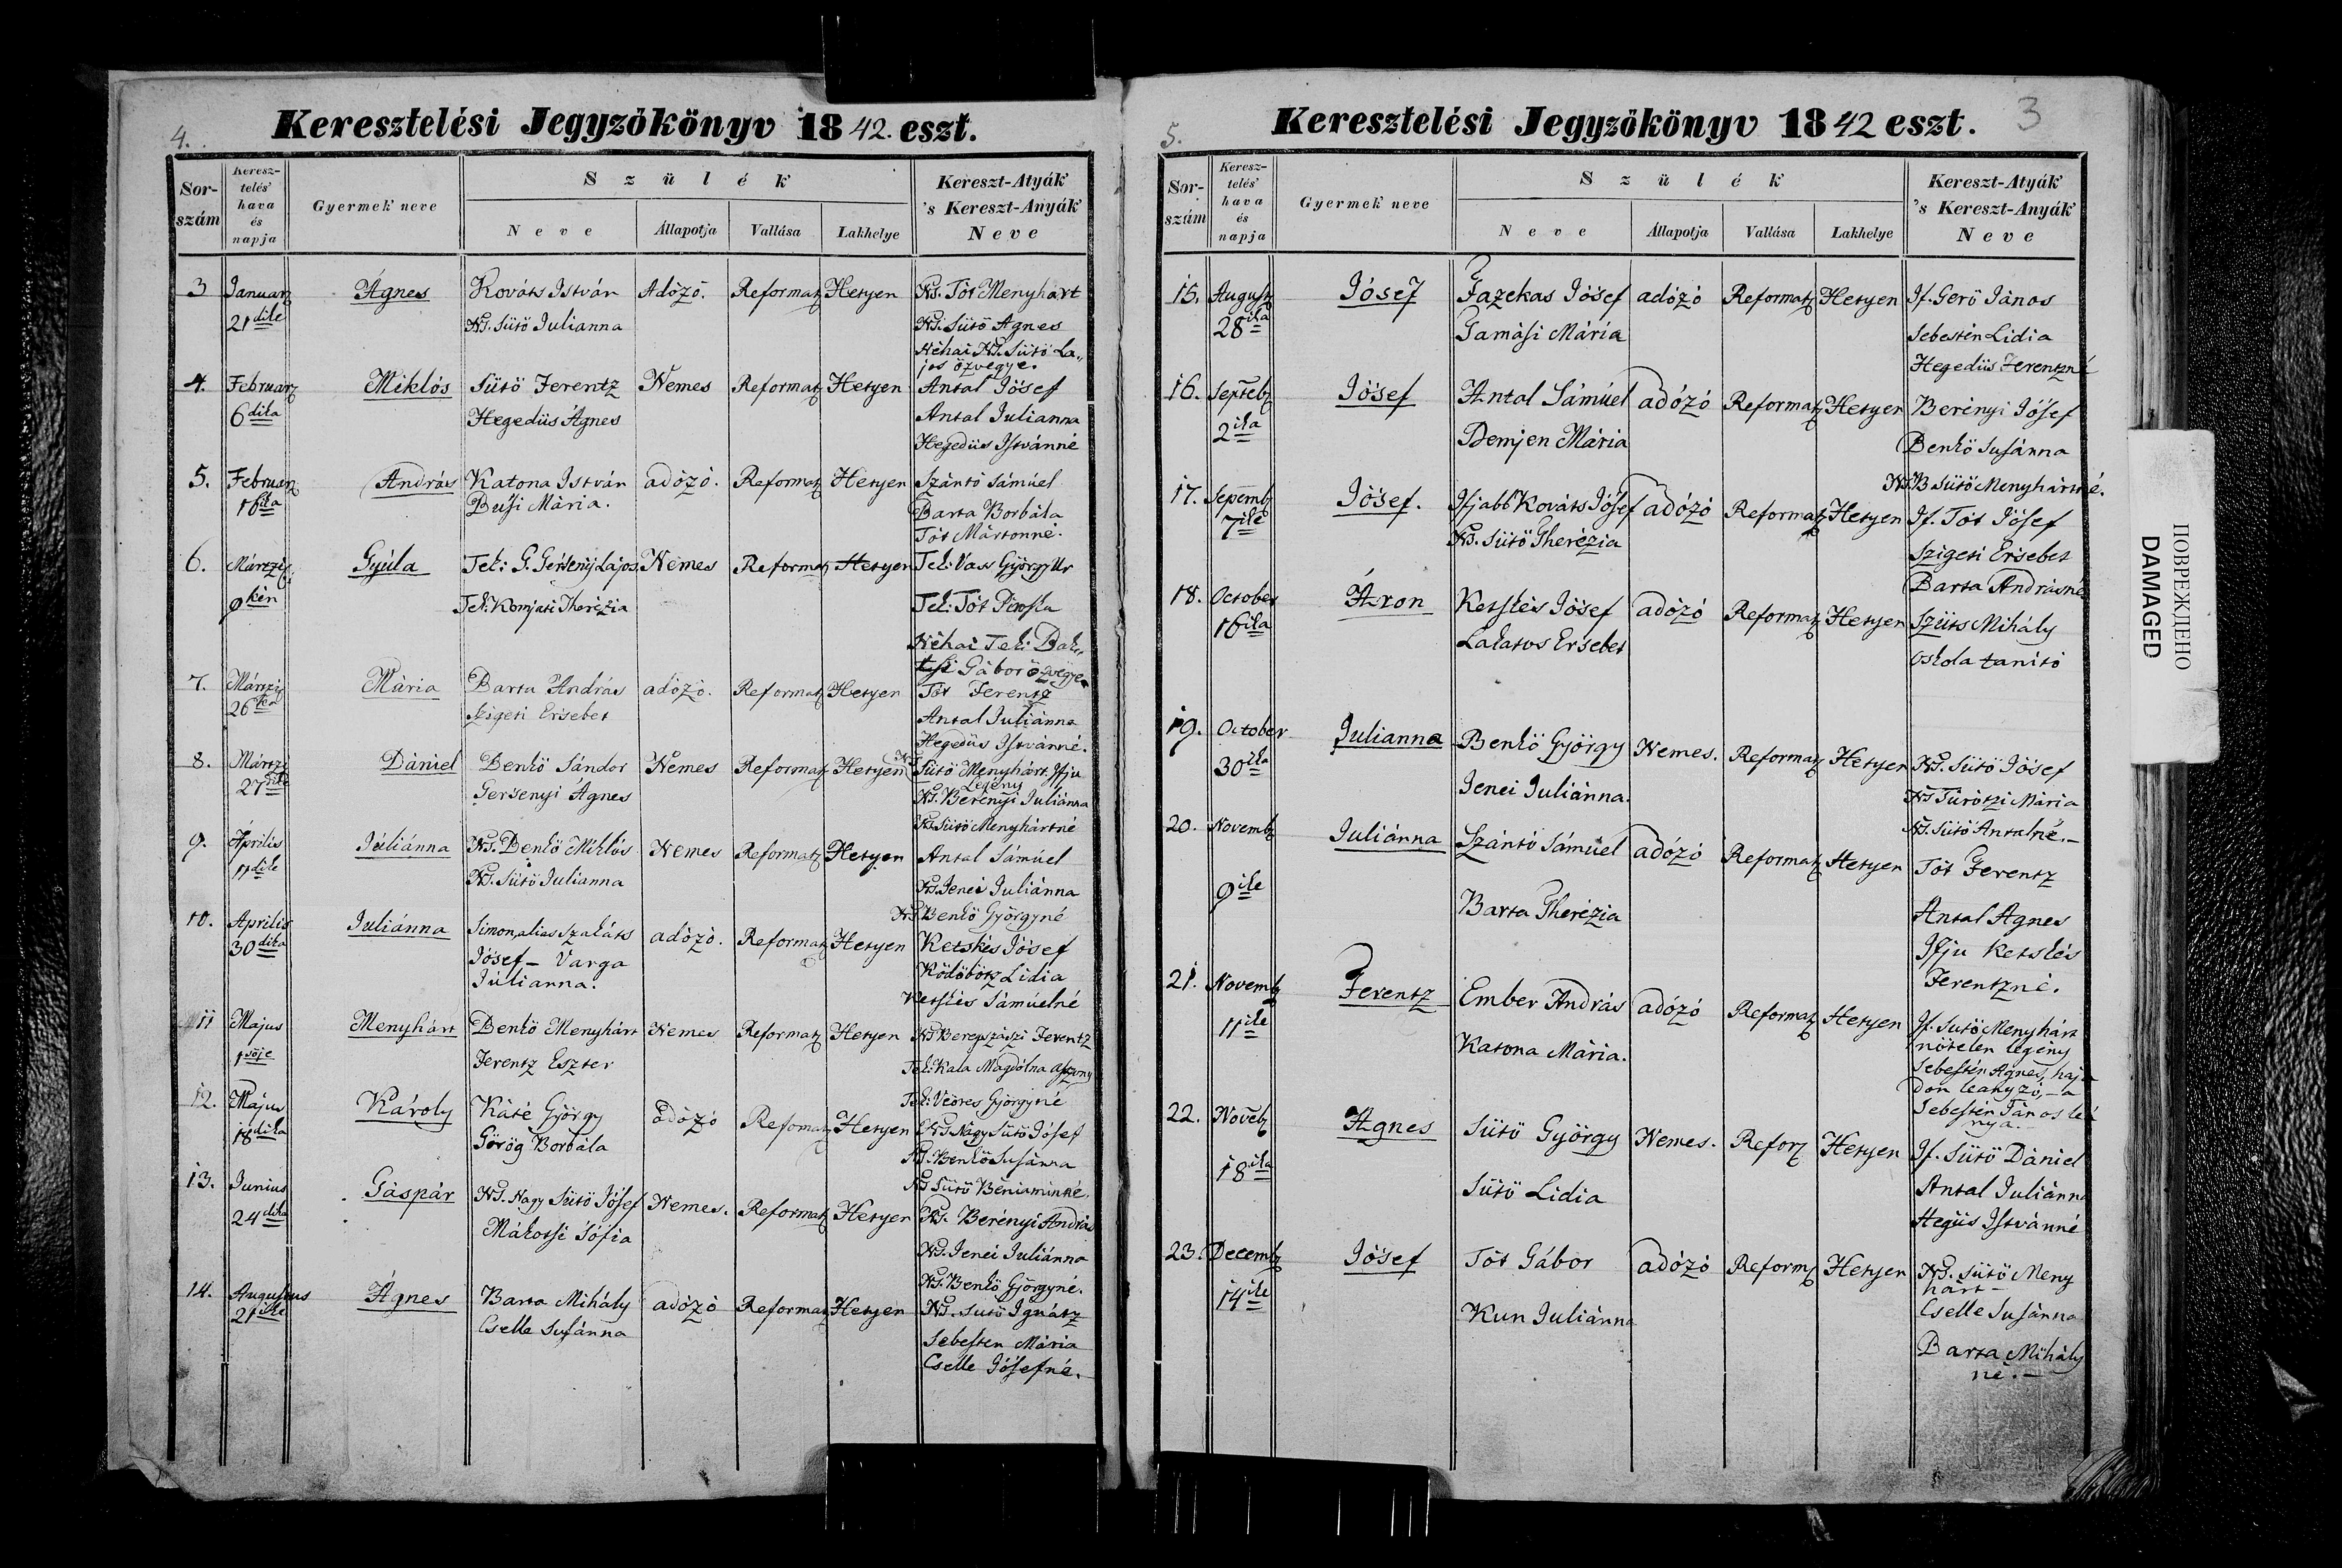 4.
Keresztelési Jegyzőkönyv 1842. eszt.
Sor-szám
Keresz-telés' hava és napja
Gyermek neve
Szülék
Neve
Állapotja
Vallása
Lakhelye
Kereszt-Atyák 's Kereszt-Anyák Neve
3 Januar Ágnes Kováts István Adózó. Reformat Hetyen Ns. Tót Menyhárt
21dike Ns. Sütö Julianna Ns. Sütö Agnes
Néhai Ns. Sütö La,,
jos özvegye.
4. Februar Miklós Sütö Ferentz Nemes Reformat Hetyen Antal Jósef
6dika Hegedüs Ágnes Antal Julianna
Hegedüs Istvánné
5. Februar András Katona István adózó. Reformat Hetyen Szántó Sámúel
16ika Buśi Mária. Barta Borbála
Tót Mártonné.
6. Mártzi Gyúla Tek: G. Lajos Nemes Reformat Hetyen Tek: Vass György Ur
9kén Tek: Komjati Therézia Tek: Tót Piroska
Néhai Tek: Bak,,
Gábor özvegye
7. Mártzi Mária Barta András adózó. Reformat Hetyen Tót Ferentz
26ka Szigeti Ersebet Antal Juliánna
Hegedüs Istvánné.
8. Mártzi Dániel Benkö Sándor Nemes Reformat Hetyen Ns Sütö Menyhárt Ifju
Legény
27 Gersenyi Ágnes Ns. Berényi Juliánna
Ns. Sütö Menyhártné
9. Április Júliánna Ns. Benkö Miklós Nemes Reformat Hetyen Antal Sámúel
11dike Ns. Sütö Julianna Ns. Jenei Juliánna
Ns. Benkö Györgyné
10. Aprilis Juliánna Simon, alias Szakáts adózó. Reformat Hetyen Ketskés Jósef
30dika Jósef – Varga Ködöbötz Lidia
Júlianna. Ketskés Sámúelné
11 Majus Menyhárt Benkö Menyhárt Nemes Reformat Hetyen Ns Beregszászi Ferentz
1söje Ferentz Eszter Tek: Kala Magdólna
Tek: Veöres Györgyné
12. Majus Károly Káté György adózó Refomat Hetyen Ns Nagy Sütö Jósef
18dika Görög Borbála Ns. Benkö Susánna
Ns Sütö Béniáminné.
13. Junius Gáspár Ns. Nagy Sütö Jósef Nemes. Reformat Hetyen Ns. Berényi András
24dika Mákotsi Sófia Ns. Jenei Juliánna
Ns. Benkö Györgyné.
14. Augustus Ágnes Barta Mihály adózó Reformat Hetyen Ns. Sütö Ignátz
21ike Cselle Susánna Sebesten Mária
Cselle Jósefné.
5.
Keresztelési Jegyzőkönyv 1842 eszt. 3
Sor-szám
Keresz-telés' hava és napja
Gyermek neve
Szülék
Neve
Állapotja
Vallása
Lakhelye
Kereszt-Atyák 's Kereszt-Anyák Neve
15. August Jósef Fazekas Jósef adózó Reformat Hetyen If. Gerö János
28ika Gamási Mária Sebestén Lidia
Hegedüs Ferentzné
16. Septeb Jósef Antal Sámúel adózó Reformat Hetyen Berényi Jósef
2ika Demjen Mária Benkö Susánna
Ns B Sütö Menyhártné.
17. Sepemb Jósef. Ifjabb Kováts Jósef adózó Reformat Hetyen If. Tót Jósef
7ike Ns. Sütö Therézia Szigeti Ersebet
Barta Andrásné
18. October Áron Ketskés Jósef adózó Reformat Hetyen Szüts Mihály
16ika Lakatos Ersebet oskola tanító
19. October Julianna Benkö György Nemes. Reformat Hetyen Ns. Sütö Jósef
30ika Jenei Juliánna. Ns Túrótzi Mária
Ns. Sütö Antalné.–
20. Novemb Juliánna Szántó Sámúel adózó Reformat Hetyen Tót Ferentz
9ike Barta Therézia Antal Agnes
Ifju Ketskés
Ferentzné.
21. Novemb Ferentz Ember András adózó Reformat Hetyen If. Sutö Menyhárt
nőtelen legény
11ike Katona Mária. Sebestén Agnes, haj-
don leányzó, – a
Sebestén János leá
nya.–
22. Noveb Agnes Sütö György Nemes. Refor Hetyen If. Sütö Dániel
18ika Sütö Lidia Antal Juliánna
Hegüs Istvánné
23. Decemb Jósef Tót Gábor adózó Reform Hetyen Ns. Sütö Meny
hárt–
14ike Kun Juliánna Cselle Susánna
Barta Mihály
né.–
ПОВРЕЖДЕНО
DAMAGED